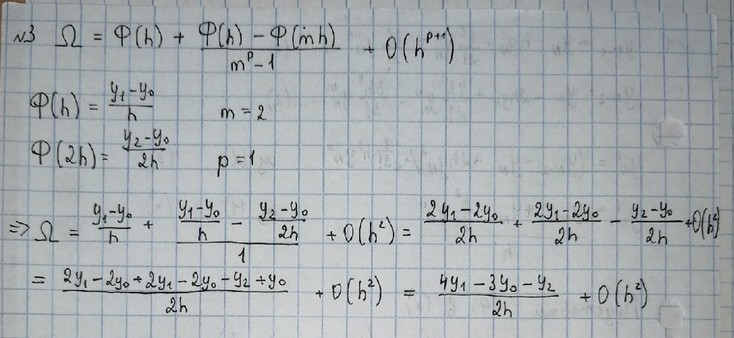 №3 Ω = Φ(h) + (Φ(h) − Φ(mh))/(m^p − 1) + O(h^(p+1))
Φ(h) = (y₁−y₀)/h m = 2
Φ(2h) = (y₂−y₀)/2h p = 1
⇒ Ω = (y₁−y₀)/h + ((y₁−y₀)/h − (y₂−y₀)/2h)/1 + O(h²) = (2y₁−2y₀)/2h + (2y₁−2y₀)/2h − (y₂−y₀)/2h + O(h²)
= (2y₁−2y₀+2y₁−2y₀−y₂+y₀)/2h + O(h²) = (4y₁−3y₀−y₂)/2h + O(h²)